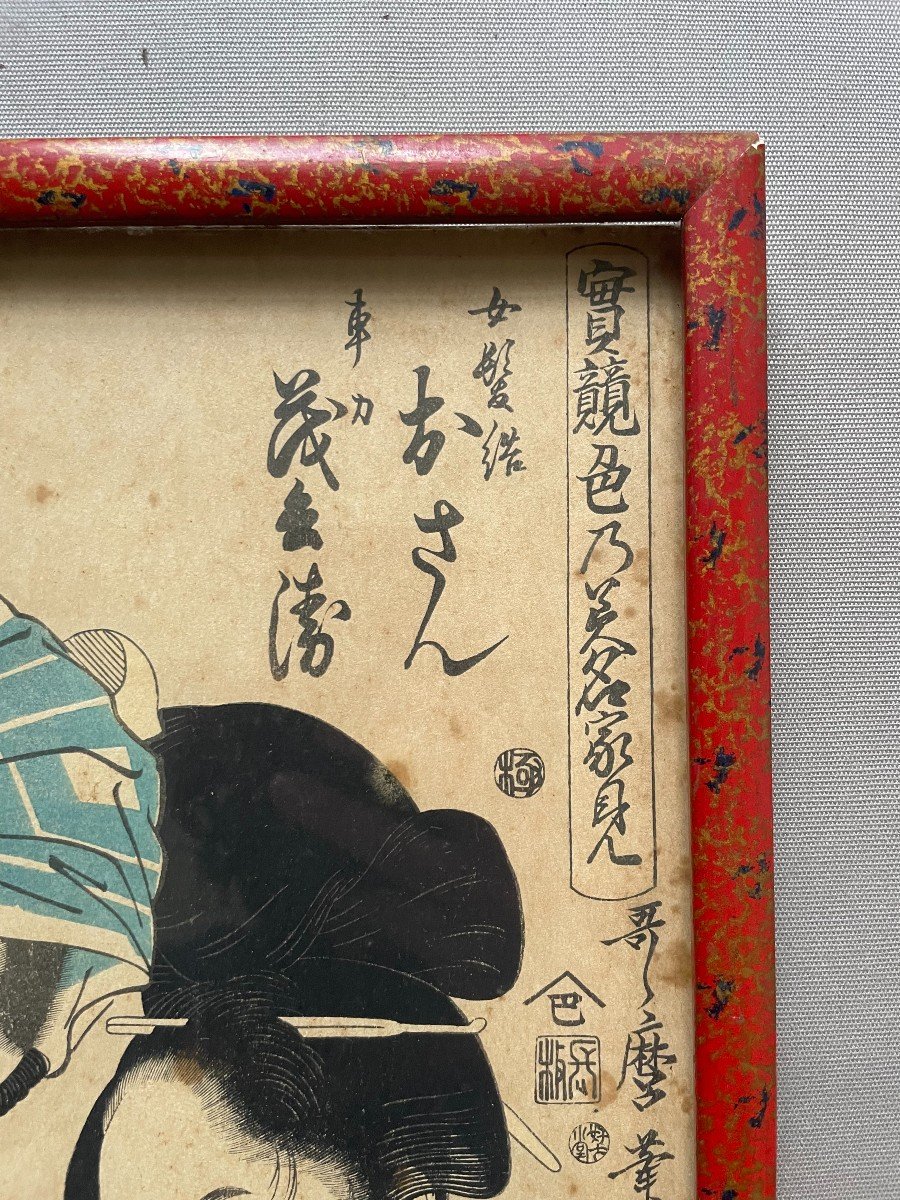 實競色乃美名家見
女髪結
おさん
車力
茂兵衛
極
哥麿筆
巴